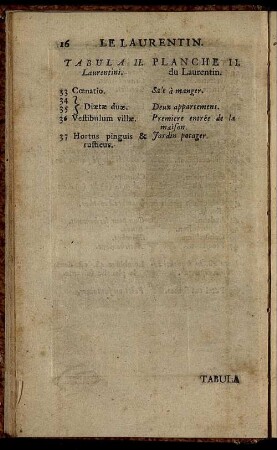 16 LE LAURENTIN.
TABULA II. PLANCHE II.
Laurentini. du Laurentin.
33 Cœnatio. Sale à manger.
34 }
35 } Diætæ duæ. Deux appartement.
36 Vestibulum villæ. Premiere entrée de la
maison.
37 Hortus pinguis & Jardin potager.
rusticus.
TABULA